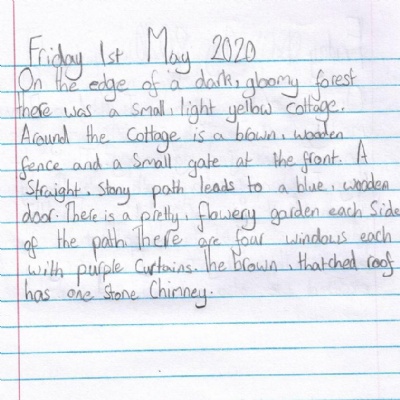 Friday 1st May 2020
On the edge of a dark, gloomy forest
there was a small, light yellow cottage.
Around the cottage is a brown, wooden
fence and a small gate at the front. A
straight, stony path leads to a blue, wooden
door. There is a pretty, flowery garden each side
of the path. There are four windows each
with purple curtains. The brown, thatched roof
has one stone chimney.